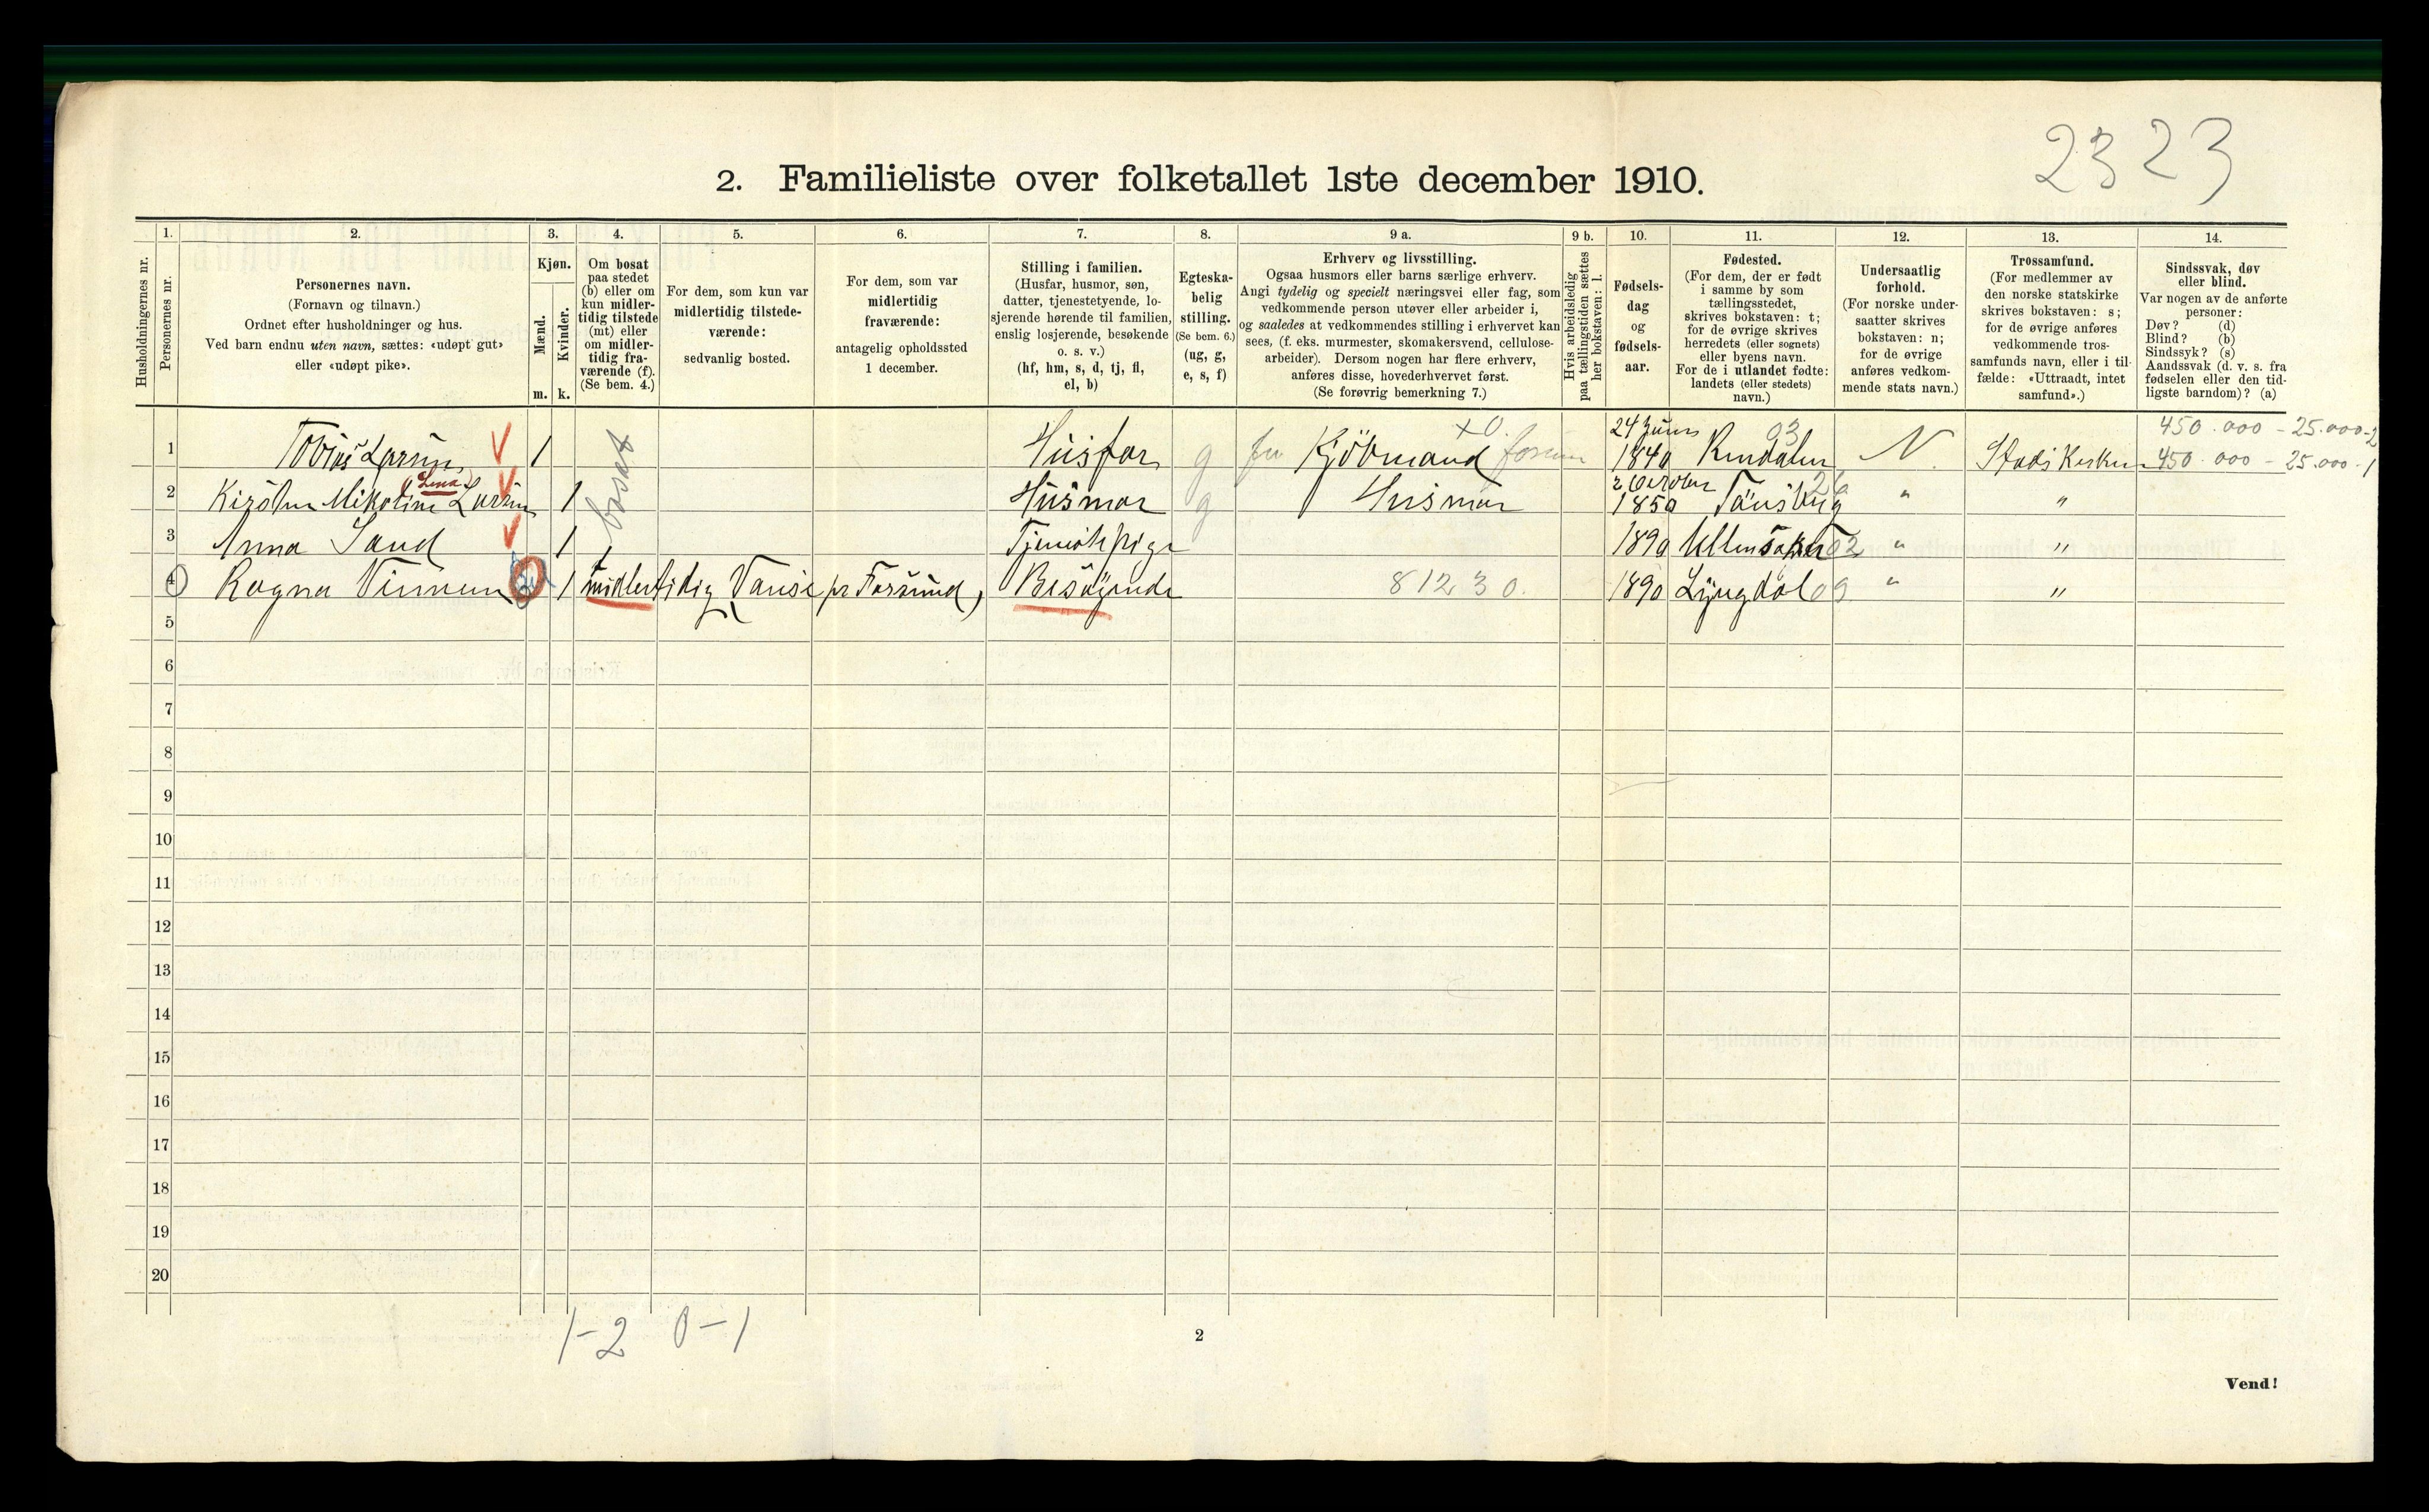 2323
2. Familieliste over folketallet 1ste december 1910.
Husholdningernes nr.
1.
Personernes nr.
2.
Personernes navn.
(Fornavn og tilnavn.)
Ordnet efter husholdninger og hus.
Ved barn endnu uten navn, sættes: «udøpt gut»
eller «udøpt pike».
3.
Kjøn.
Mænd.
Kvinder.
m. k.
4.
Om bosat
paa stedet
(b) eller om
kun midler-
tidig tilstede
(mt) eller
om midler-
tidig fra-
værende (f).
(Se bem. 4.)
5.
For dem, som kun var
midlertidig tilstede-
værende:
sedvanlig bosted.
6.
For dem, som var
midlertidig
fraværende:
antagelig opholdssted
1 december.
7.
Stilling i familien.
(Husfar, husmor, søn,
datter, tjenestetyende, lo-
sjerende hørende til familien,
enslig losjerende, besøkende
o. s. v.)
(hf, hm, s, d, tj, fl,
el, b)
8.
Egteska-
belig
stilling.
(Se bem. 6.)
(ug, g,
e, s, f)
9 a.
Erhverv og livsstilling.
Ogsaa husmors eller barns særlige erhverv.
Angi tydelig og specielt næringsvei eller fag, som
vedkommende person utøver eller arbeider i,
og saaledes at vedkommendes stilling i erhvervet kan
sees, (f. eks. murmester, skomakersvend, cellulose-
arbeider). Dersom nogen har flere erhverv,
anføres disse, hovederhvervet først.
(Se forøvrig bemerkning 7.)
9 b.
Hvis arbeidsledig
paa tællingstiden sættes
her bokstaven: l.
10.
Fødsels-
dag
og
fødsels-
aar.
11.
Fødested.
(For dem, der er født
i samme by som
tællingsstedet,
skrives bokstaven: t;
for de øvrige skrives
herredets (eller sognets)
eller byens navn.
For de i utlandet fødte:
landets (eller stedets)
navn.)
12.
Undersaatlig
forhold.
(For norske under-
saatter skrives
bokstaven: n;
for de øvrige
anføres vedkom-
mende stats navn.)
13.
Trossamfund.
(For medlemmer av
den norske statskirke
skrives bokstaven: s;
for de øvrige anføres
vedkommende tros-
samfunds navn, eller i til-
fælde: «Uttraadt, intet
samfund».)
14.
Sindssvak, døv
eller blind.
Var nogen av de anførte
personer:
Døv? (d)
Blind? (b)
Sindssyk? (s)
Aandssvak (d. v. s. fra
fødselen eller den tid-
ligste barndom)? (a)
x0. 24 Juni 03 450.000 - 25.000-2
1 Tobias Larsen V 1 bosat Husfar g Kjöbmand 1840 Rendalen N. Stads Kirken 450.000 - 25.000-1
(Lina)
2 Kirsten Mikoline Larsen V 1 Husmor g Husmor 1850 Tönsberg " "
3 Anna Sand V 1 Tjenestepige 1890 Ullensaker 02 " "
4 Ragna Vinnum 1 midlertidig Vanse pr Farsund, Besögende 81230. 1890 Lyngdal 09 " "
5
6
7
8
9
10
11
12
13
14
15
16
17
18
19
20
1-2 0-1
2
Vend!